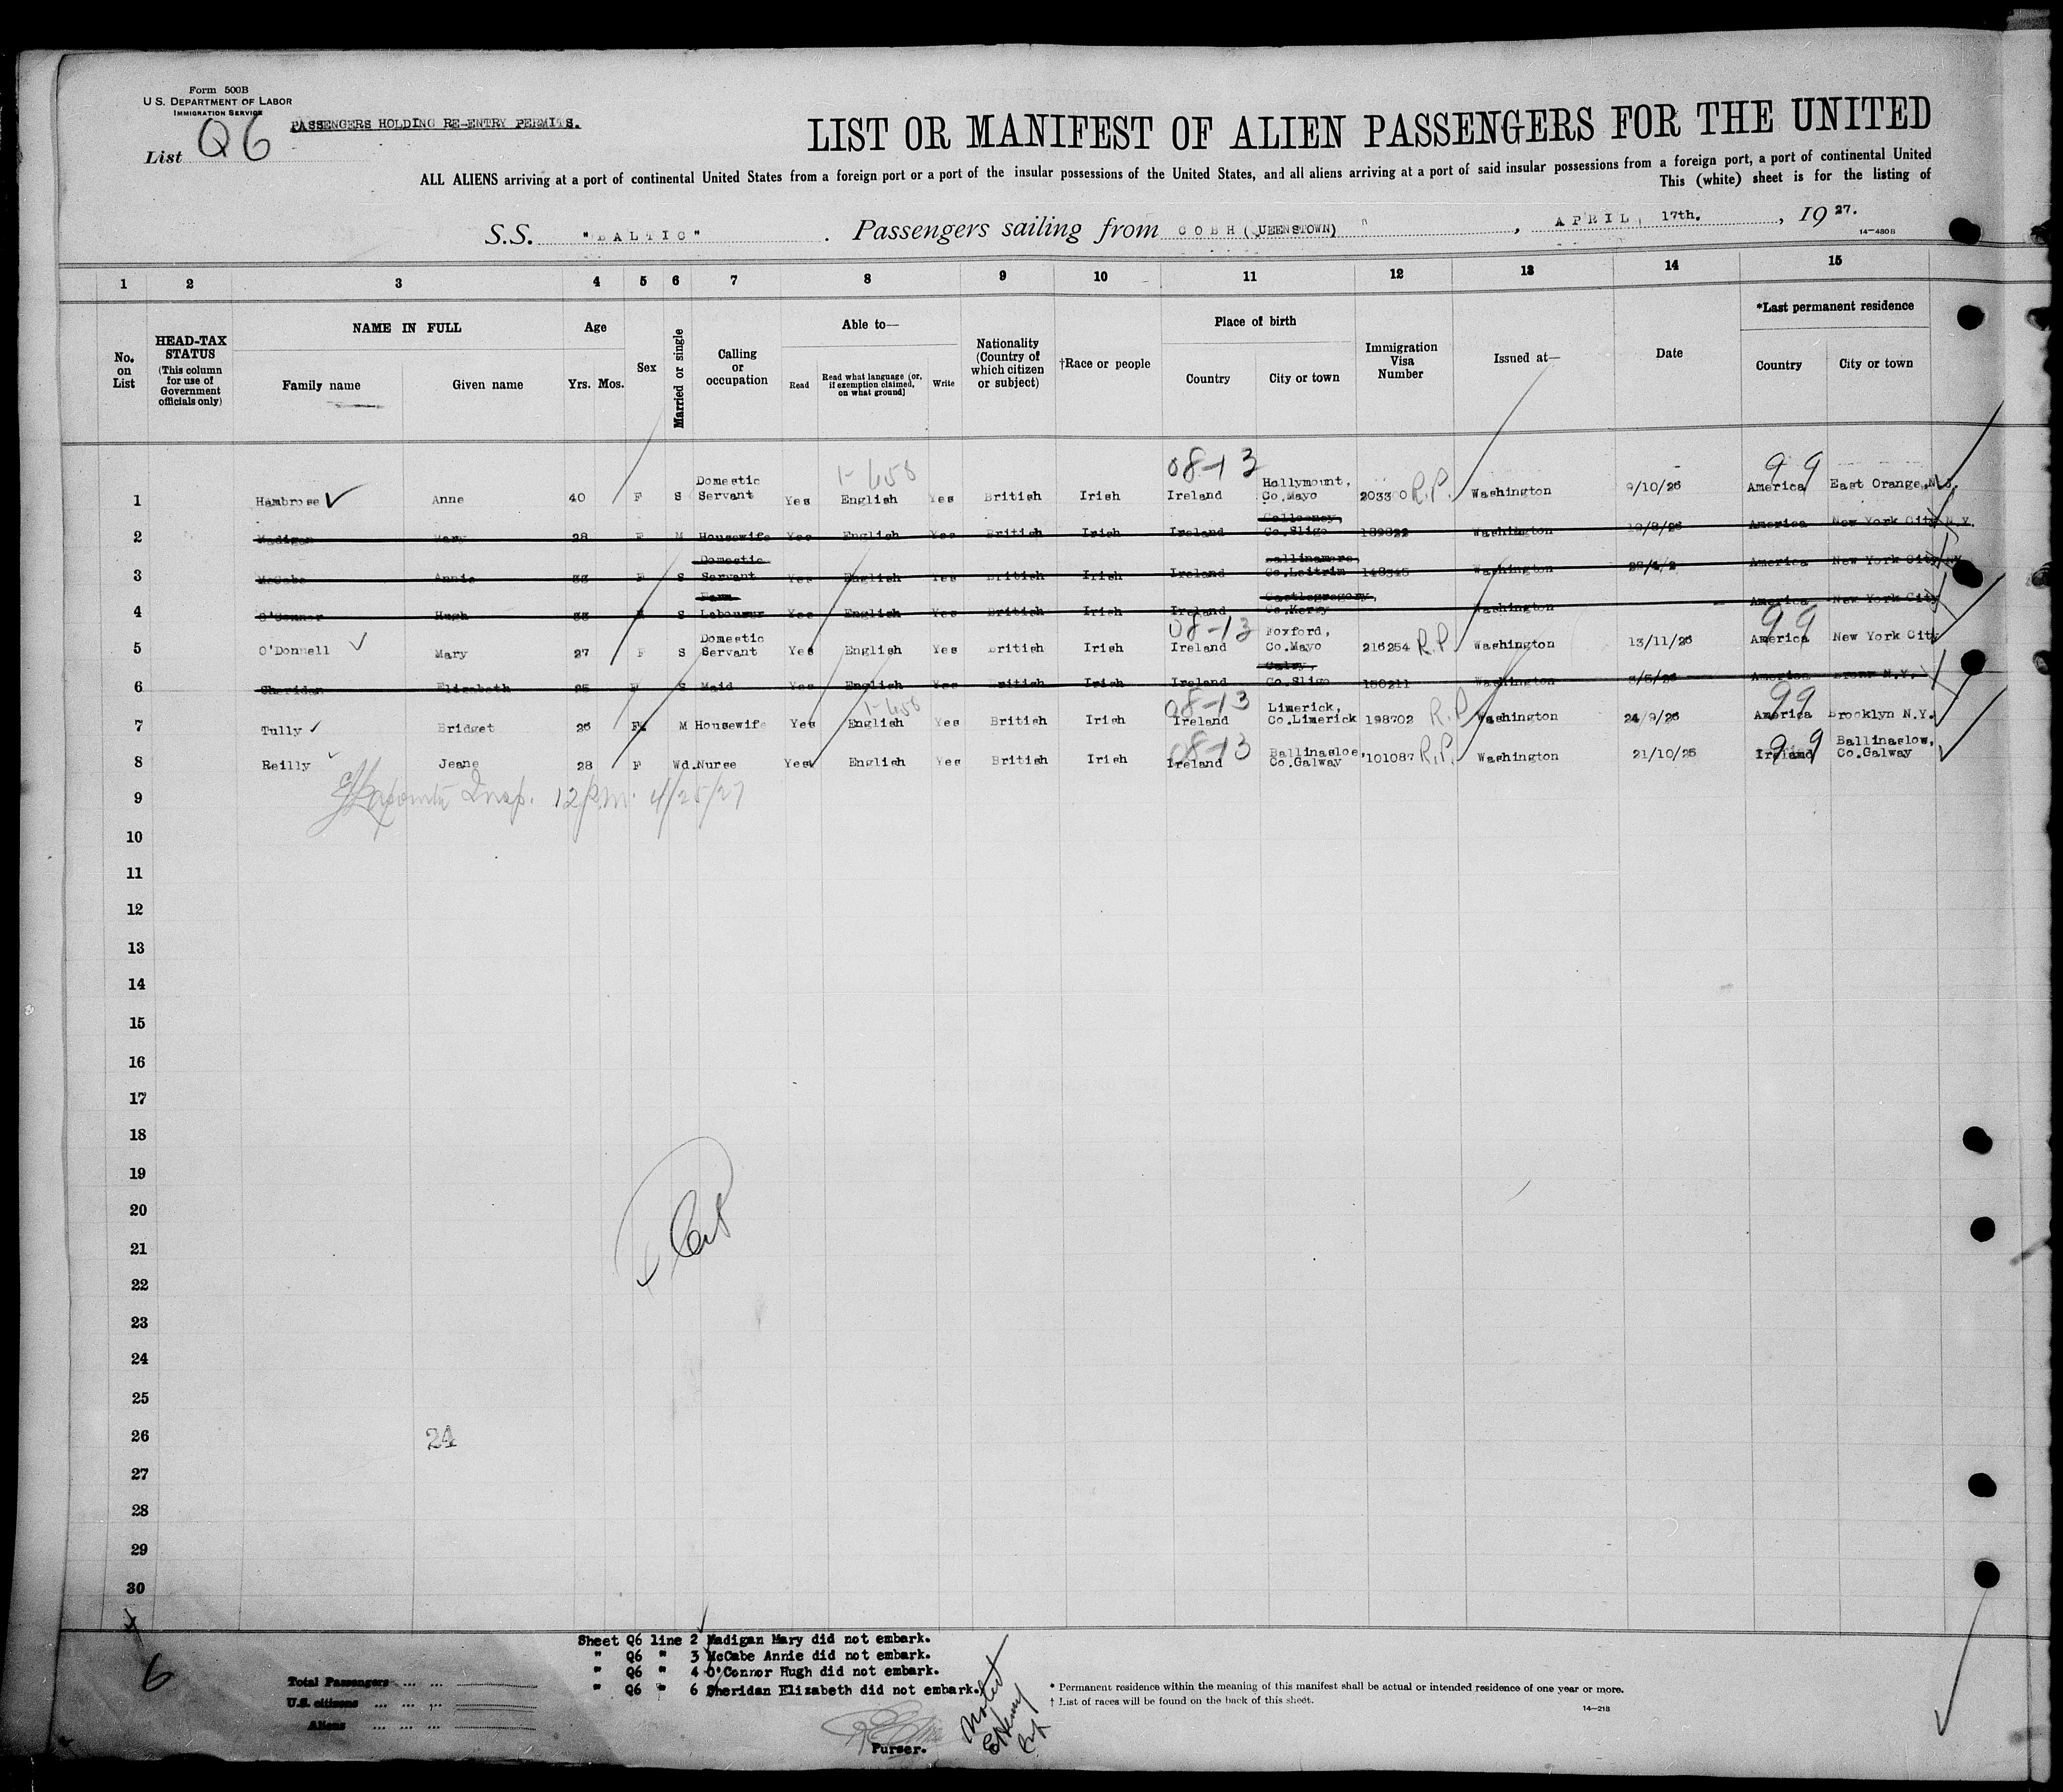 Form 500B
U. S. DEPARTMENT OF LABOR
IMMIGRATION SERVICE
PASSENGERS HOLDING RE-ENTRY PERMITS.
List Q6
LIST OR MANIFEST OF ALIEN PASSENGERS FOR THE UNITED
ALL ALIENS arriving at a port of continental United States from a foreign port or a port of the insular possessions of the United States, and all aliens arriving at a port of said insular possessions from a foreign port, a port of continental United
This (white) sheet is for the listing of
S.S. "BALTIC". Passengers sailing from COBH (QUEENSTOWN), APRIL, 17th., 1927.
14—480B
1 2 3 4 5 6 7 8 9 10 11 12 13 14 15
No. on List
HEAD-TAX STATUS (This column for use of Government officials only)
NAME IN FULL Family name Given name
Age Yrs. Mos.
Sex
Married or single
Calling or occupation
Able to— Read Read what language (or, if exemption claimed, on what ground) Write
Nationality (Country of which citizen or subject)
†Race or people
Place of birth Country City or town
Immigration Visa Number
Issued at—
Date
*Last permanent residence Country City or town
1 Hambrose Anne 40 F S Domestic Servant Yes 1-658 English Yes British Irish 08-13 Ireland Hollymount, Co.Mayo 203300 R.P. Washington 9/10/26 99 America East Orange, N.J.
2 Madigan Mary 28 F M Housewife Yes English Yes British Irish Ireland Collooney, Co.Sligo Washington America New York City N.Y.
3 McCabe Annie 33 F S Domestic Servant Yes English Yes British Irish Ireland Ballinamore, Co.Leitrim 148345 Washington America New York City
4 O'Connor Hugh 33 S Farm Labourer Yes English Yes British Irish Ireland Castlegregory, Co.Kerry Washington America New York City
5 O'Donnell Mary 27 F S Domestic Servant Yes English Yes British Irish 08-13 Ireland Foxford, Co.Mayo 216254 R.P. Washington 13/11/26 99 America New York City
6 Sheridan Elizabeth 25 F S Maid Yes English Yes British Irish Ireland Co.Sligo 150211 Washington America Bronx N.Y.
7 Tully Bridget 26 F M Housewife Yes 1-658 English Yes British Irish 08-13 Ireland Limerick, Co.Limerick 198702 R.P. Washington 24/9/26 99 America Brooklyn N.Y.
8 Reilly Jeane 28 F Wd. Nurse Yes English Yes British Irish 08-13 Ireland Ballinasloe, Co.Galway 101087 R.P. Washington 21/10/25 99 Ireland Ballinaslow, Co.Galway
9 Insp. 12 P.M. 4/25/27
10
11
12
13
14
15
16
17
18
19
20
21
22
23
24
25
26 24
27
28
29
30
6
Total Passengers ... ...
U.S. citizens ... ... ...
Aliens ... ... ...
Sheet Q6 line 2 Madigan Mary did not embark.
" Q6 " 3 McCabe Annie did not embark.
" Q6 " 4 O'Connor Hugh did not embark.
" Q6 " 6 Sheridan Elizabeth did not embark.
Purser.
Noted
* Permanent residence within the meaning of this manifest shall be actual or intended residence of one year or more.
† List of races will be found on the back of this sheet.
14—218